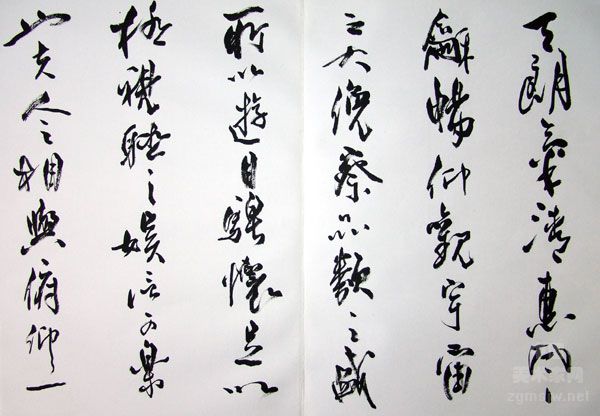 天朗氣清惠風
龢暢仰觀宇宙
之大俛察品類之盛
所以遊目騁懷足以
極視聽之娛信可樂
也夫人之相與俯仰一
美术家网
zgmsjw.net